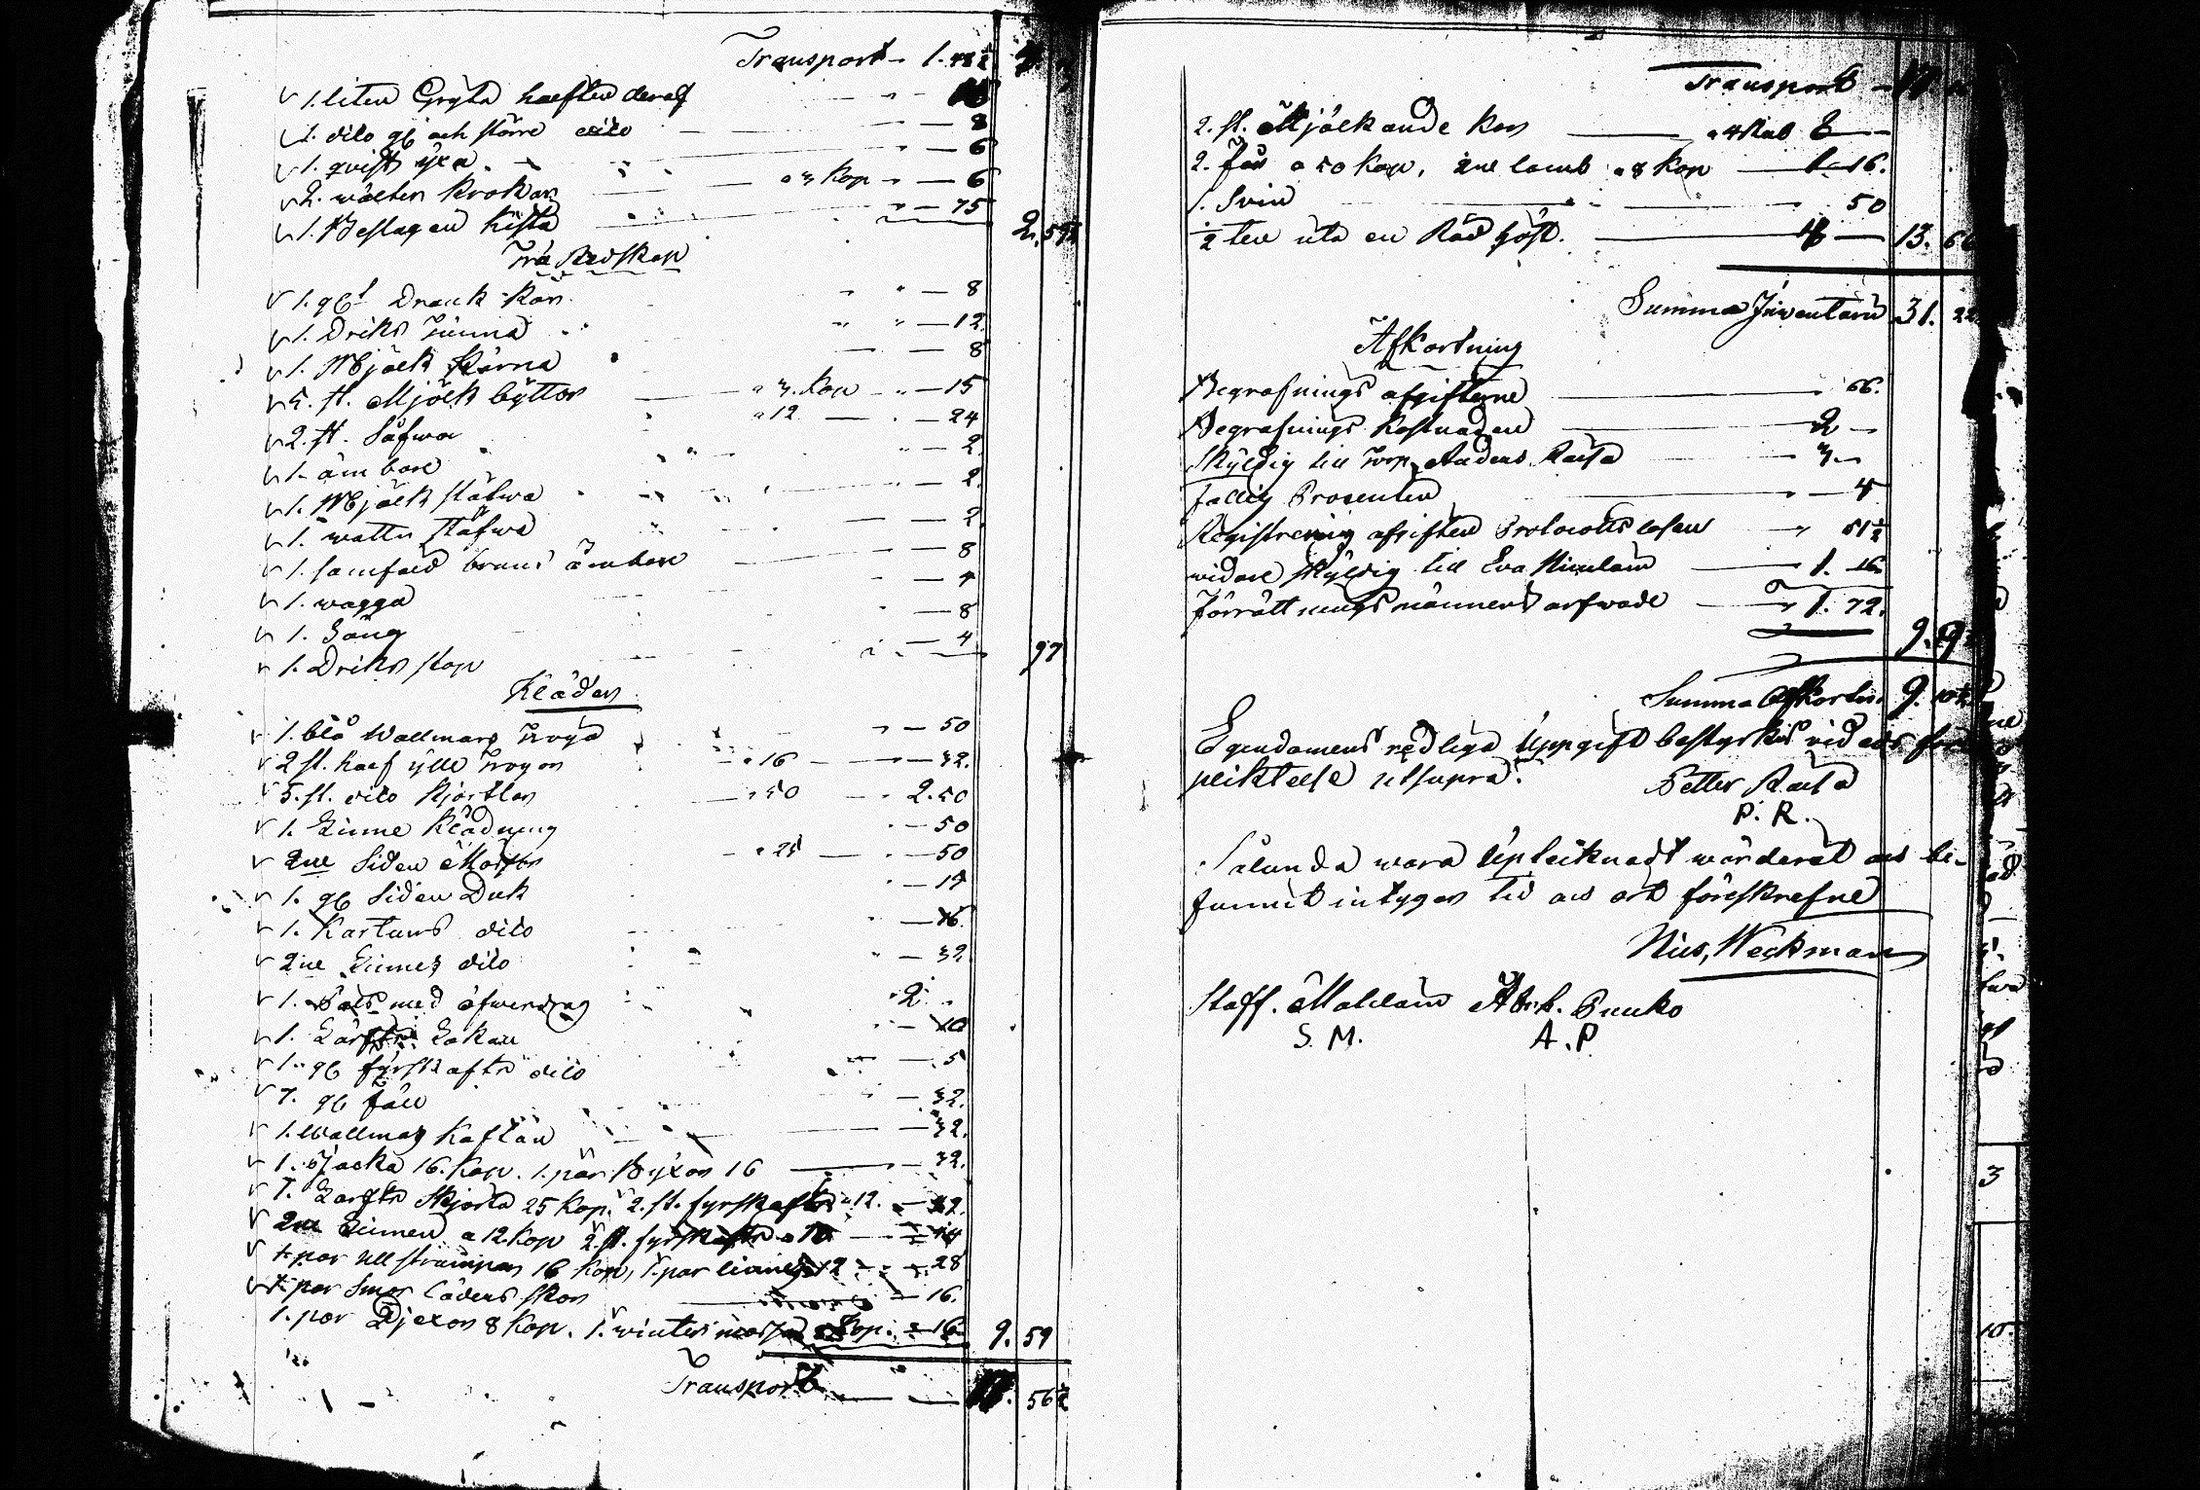 Transport 1. 48½
1. liten Gryta hælften deraf
1. dito gl och större dito 8
1. qvist yxa 6
2. wälten krokar a 3 Kop 6
1. Beslagen Kista 75 2. 59½
Trä Redskap
1. gl Drank Kar 8
1. Driks Tunna 12
1. Mjölk Kärna 8
5. st. Mjölk byttor a 3. Kop 15
2. st. Såfwa a 12 24
1. ämbare 2
1. Mjölk stäfwa 2.
1. watten stäfwa 2
1. bruns ämbare 8
1. wagga 4
1. Säng 8
1. Driks stop 4 97
Kläder
1. blå Wallmars Tröja 50
2 st. half ylle Tröjor a 16 32.
5. st. dito Kjortlar a 50 2. 50
1. Linne Klädning 50
2ne Siden Mössor a 25 50
1. gl Siden Duk 14
1. Kartuns dito 16.
2ne Linnes dito 32
1. Päls med öfwerdrag 2
1. Lärfts Lakan 10
1. gl fyrskafts dito 5
1. gl fäll 32.
1. Wallmars Kaftan 32.
1. Jacka 16. Kop. 1. par Byxor 16 32.
1. Lärfts Skjorta 25 Kop. 2. st. fyrskafts a 12.
2ne Linnen a 12 Kop 2. st. fyrskafts a 10 44
1. par ull strumpor 16 Kop, 1. par linnes 12 28
1. par Smor läders skor 16.
1. par Djexor 8 Kop. 1. winter mössa 8 Kop. 16 9. 59
Transport 56½
Transport
2. st. Mjölkande Kor a 4 Rub 8
2. Får a 50 Kop, 2ne lamb a 8 Kop 1. 16.
1. Svin 50
½ ten uti en Råd 4 13. 66
Summa Inventarii 31. 22
Afkortning
Begrafnings afgifterne 66.
Begrafnings Kostnaden 2
Skyldig till Torp. Anders Rausa 3
Fallig Prosenten 4
Registrering afgiften Protocolls lösen 51½
vidare skyldig till Eva 1. 16
Förrättningsmännens arfwode 1. 72.
9. 9½
Summa Afkortn. 9. 10½
Egendomens redliga Uppgift bestyrkes vid eds för
pliktelse utsupra.
Petter Rausa
P. R.
Sålunda wara Upteiknadt wärderat och be-
funnit intygar tid och ort föreskrefne
Nils, Weckman
Staff. Abrh. Punko
S. M. A. P
3
10.